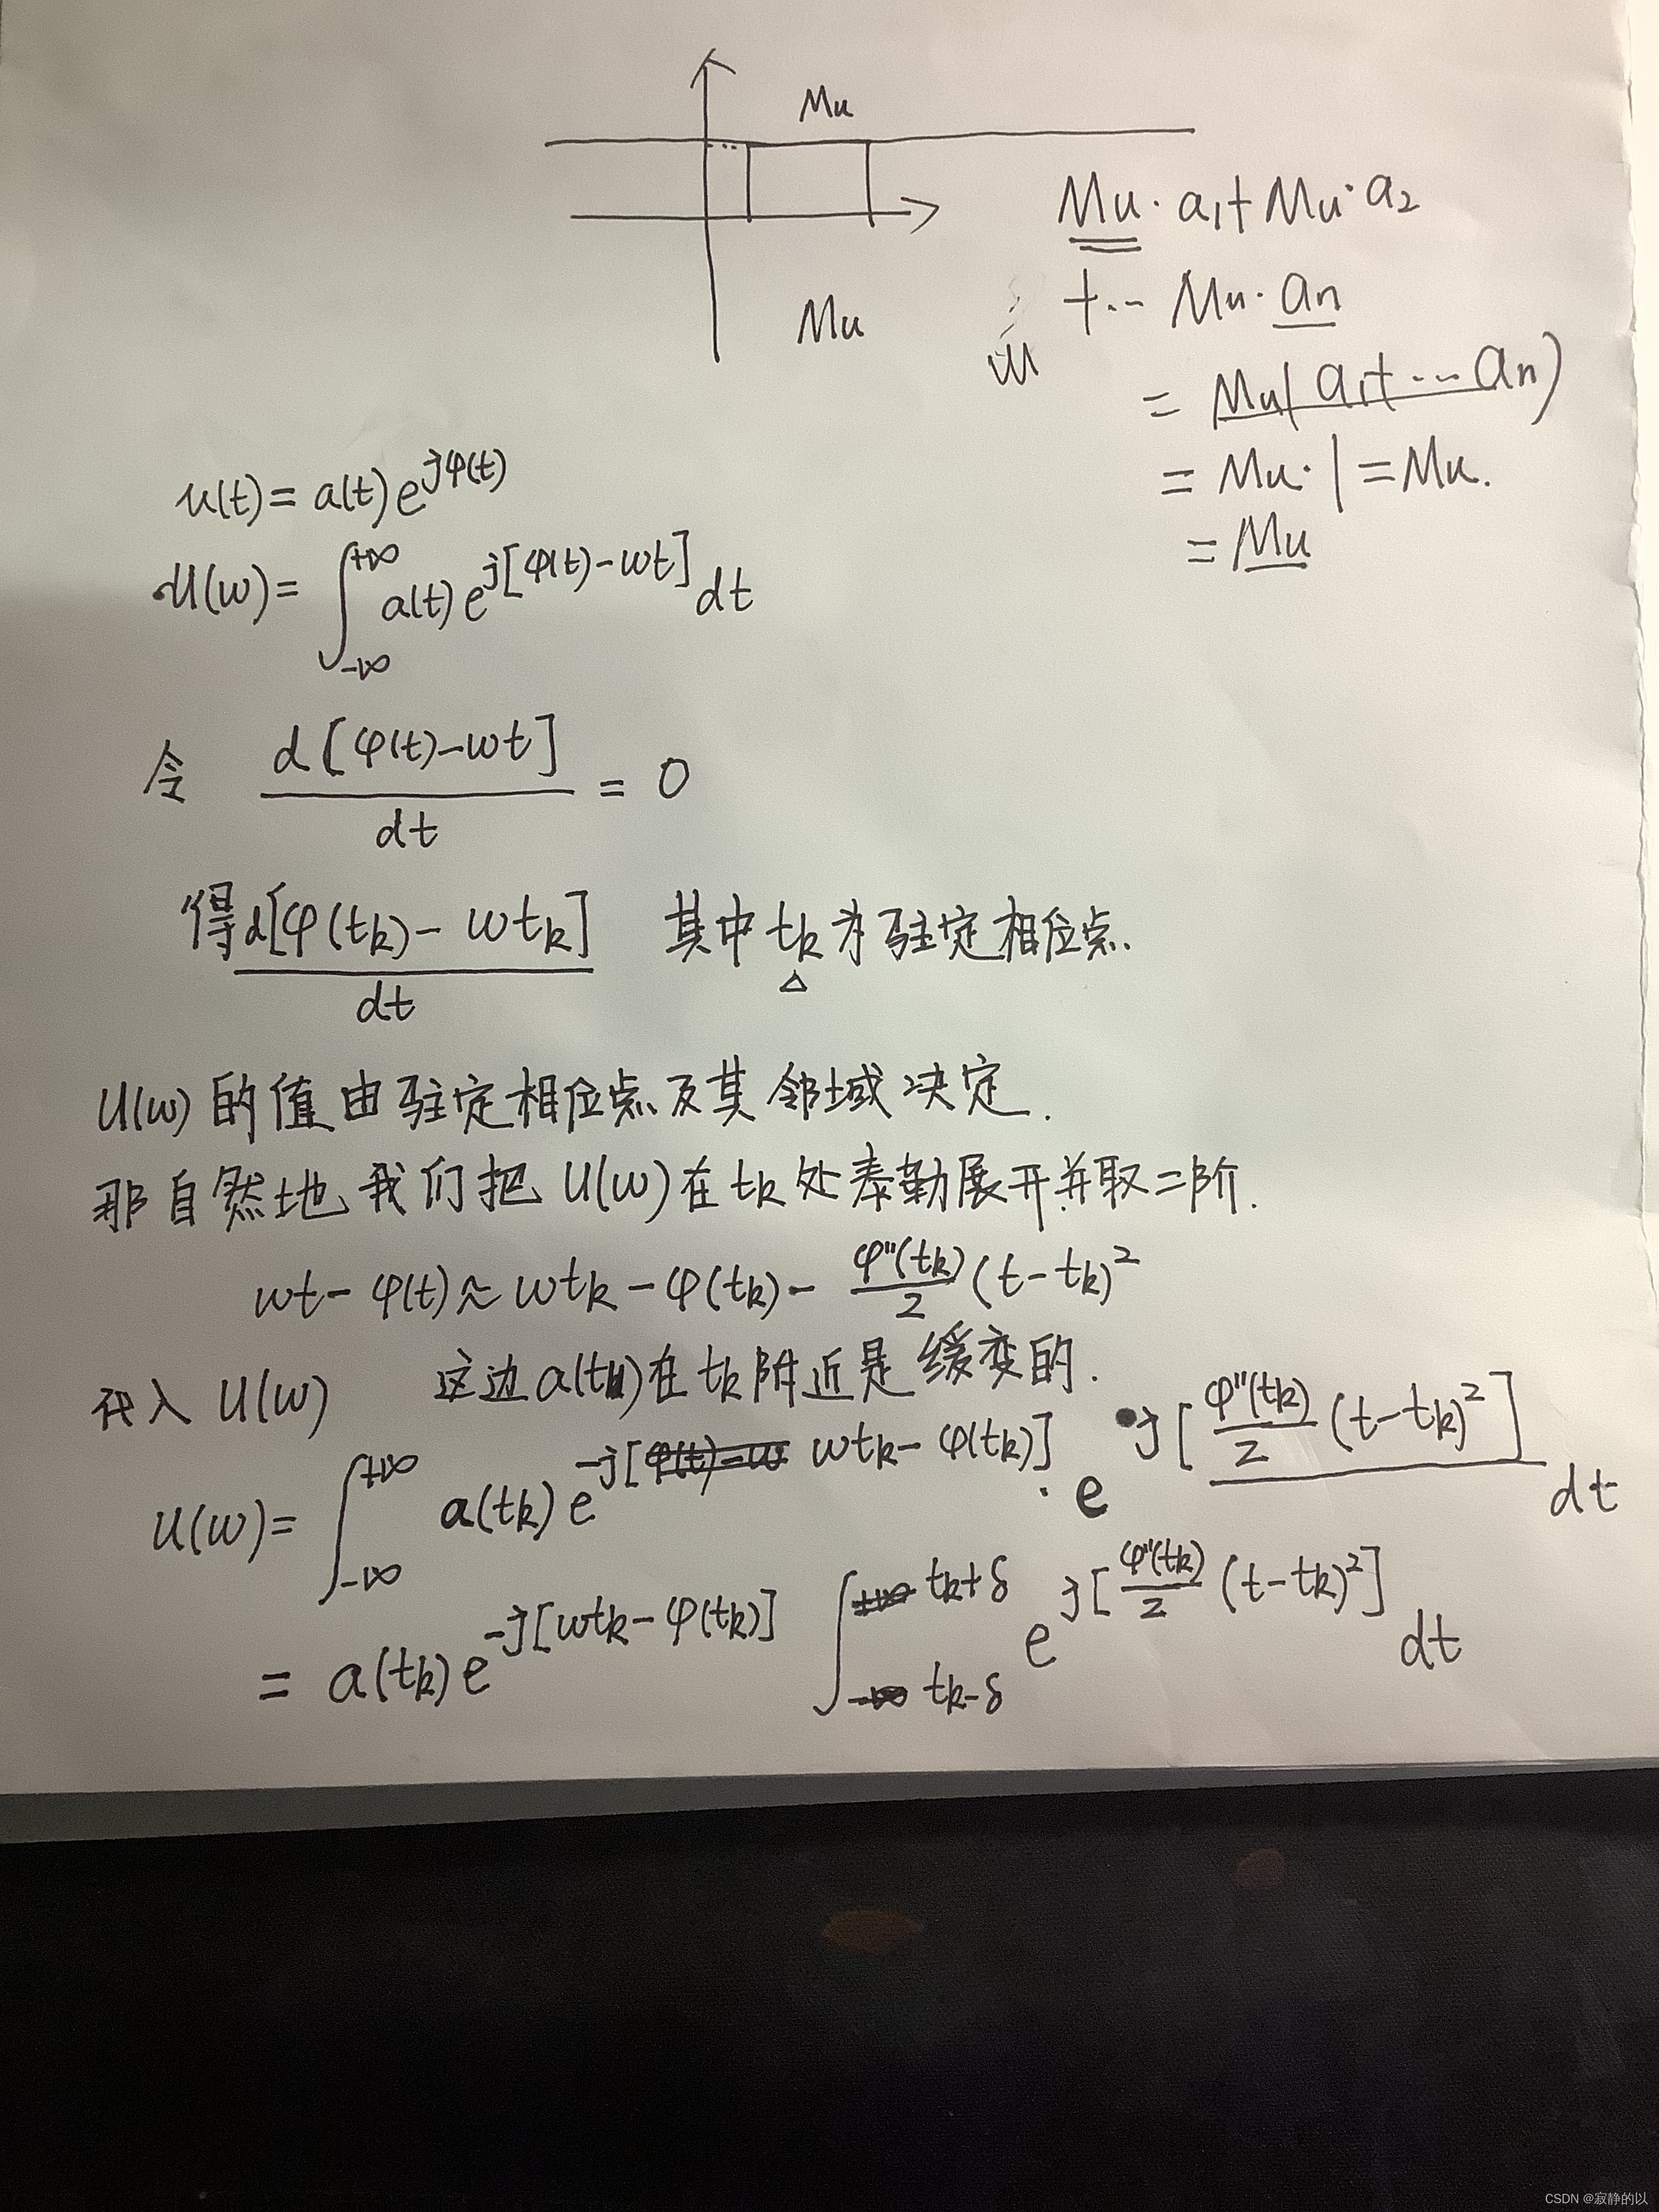 Mu
Mu
Mu · a₁ + Mu · a₂
+ ·· Mu · an
= Mu( a₁ + ··· an)
= Mu · 1 = Mu.
= Mu
u(t) = a(t) e^{jφ(t)}
U(w) = ∫_{-∞}^{+∞} a(t) e^{j[φ(t)-wt]} dt
令 d[φ(t)-wt] / dt = 0
得 d[φ(tk) - wtk] / dt 其中 tk 为驻定相位点.
U(w) 的值由驻定相位点及其邻域决定.
那自然地我们把 U(w) 在 tk 处泰勒展开并取二阶.
wt - φ(t) ≈ wtk - φ(tk) - φ''(tk)/2 (t-tk)²
代入 U(w) 这边 a(tk) 在 tk 附近是缓变的.
U(w) = ∫_{-∞}^{+∞} a(tk) e^{-j[wtk-φ(tk)]} · e^{j[φ''(tk)/2 (t-tk)²]} dt
= a(tk) e^{-j[wtk-φ(tk)]} ∫_{tk-δ}^{tk+δ} e^{j[φ''(tk)/2 (t-tk)²]} dt
CSDN @寂静的以